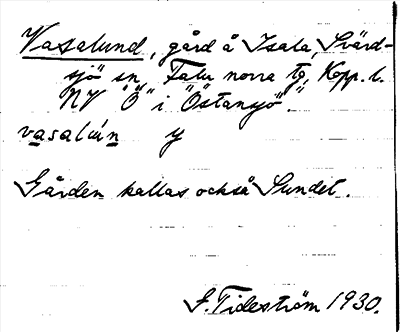 Vasalund, gård å Isala, Svärd-
sjö sn, Falu norra tg, Kopp. l.
NV "Ö" i "Östansjö".
vasalún y
Gården kallas också Sundet.
F. Tideström 1930.